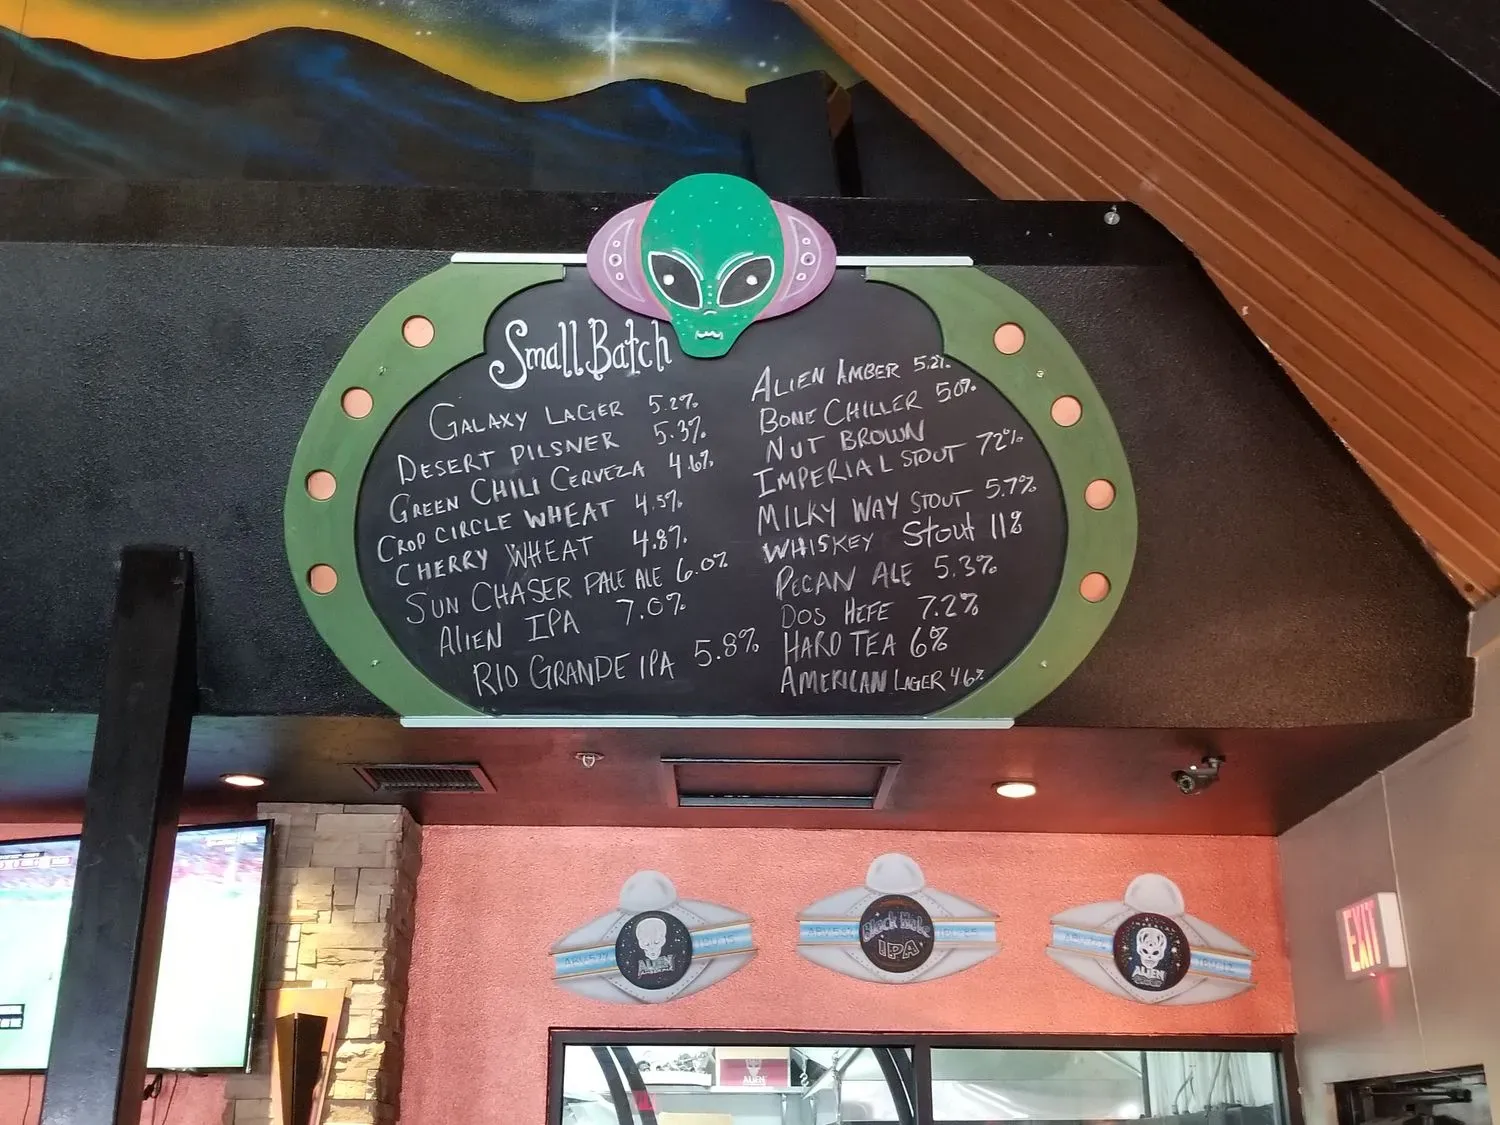 Small Batch
GALAXY LAGER 5.2%
DESERT PILSNER 5.3%
GREEN CHILI CERVEZA 4.6%
CROP CIRCLE WHEAT 4.5%
CHERRY WHEAT 4.8%
SUN CHASER PALE ALE 6.0%
ALIEN IPA 7.0%
RIO GRANDE IPA 5.8%
ALIEN AMBER 5.2%
BONE CHILLER 50%
NUT BROWN
IMPERIAL STOUT 72%
MILKY WAY STOUT 5.7%
WHISKEY Stout 11%
PECAN ALE 5.3%
DOS HEFE 7.2%
HARD TEA 6%
AMERICAN LAGER 46%
ALIEN
Black Hole
IPA
ALIEN
EXIT
ALIEN